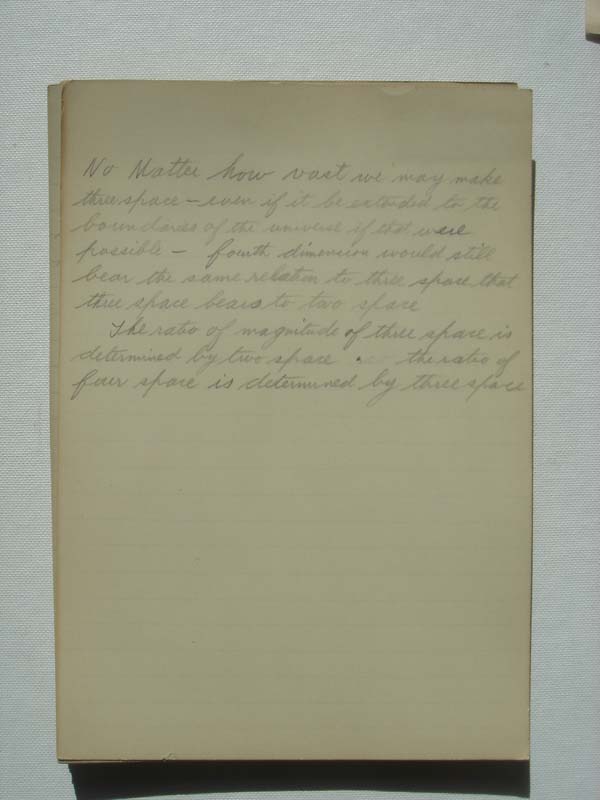 No Matter how vast we may make
three space – even if it be extended to the
boundaries of the universe if that were
possible – fourth dimension would still
bear the same relation to three space that
three space bears to two space
The ratio of magnitude of three space is
determined by two space the ratio of
four space is determined by three space